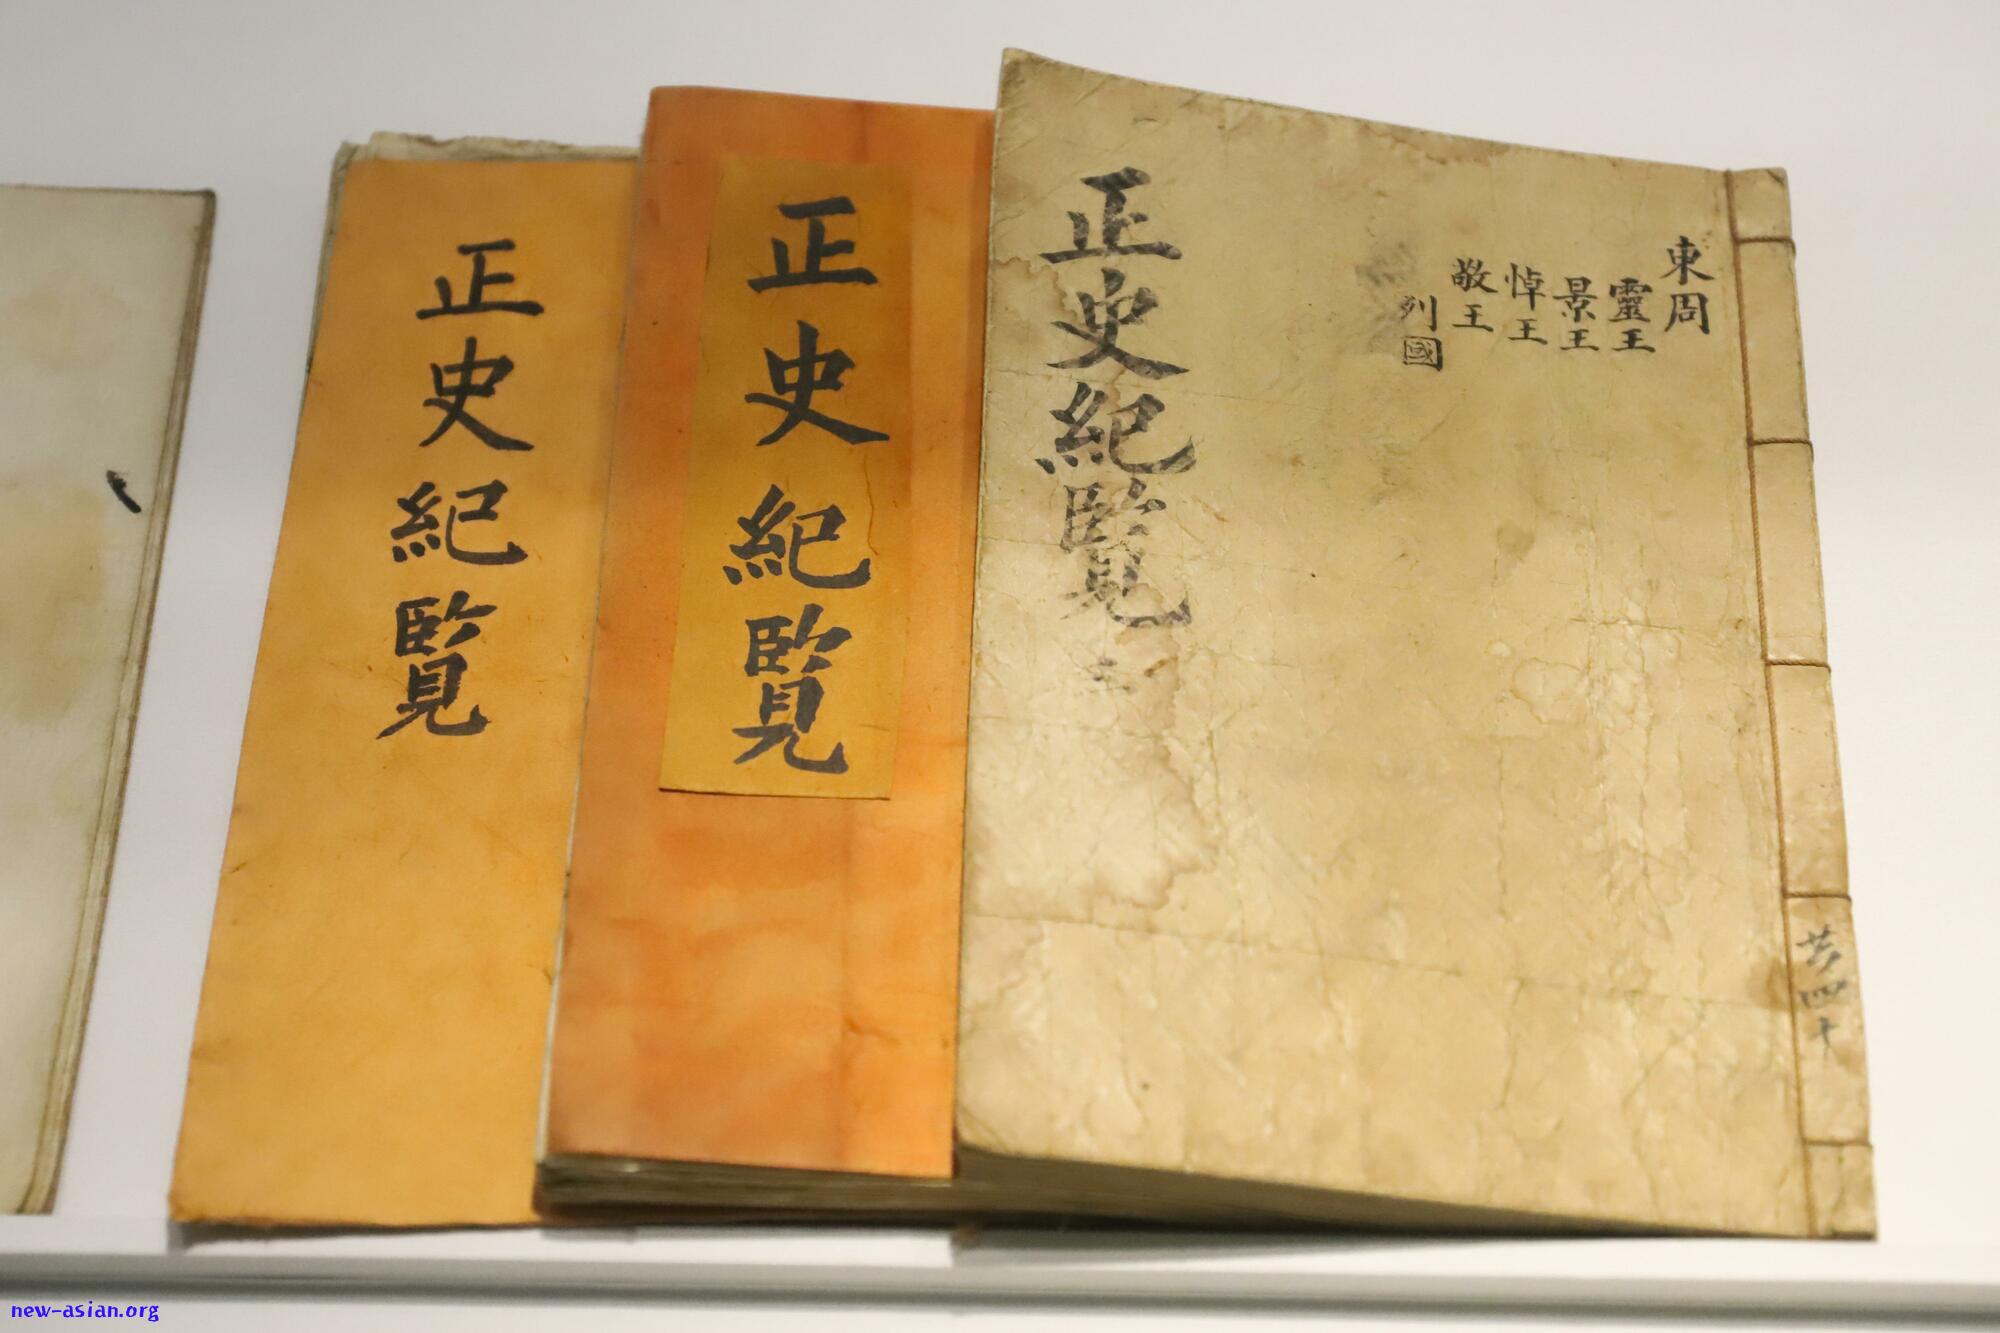 正史紀覽
正史紀覽
東周
靈王
景王
悼王
敬王
列國
正史紀覽
new-asian.org